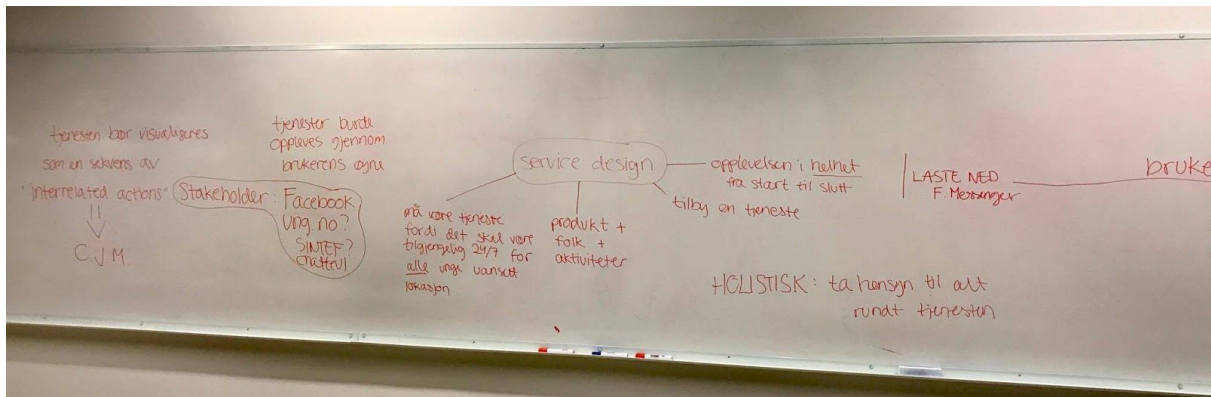 tjenesten bør visualiseres
som en sekvens av
"interrelated actions"
C.J M
tjenester burde
oppleves gjennom
brukerens øgne
Stakeholder: Facebook
ung.no?
SINTEF?
service design
må være tjeneste
fordi det skal være
tilgjengelig 24/7 for
alle unge uansett
lokasjon
produkt +
folk +
aktiviteter
opplevelsen i helhet
fra start til slutt
tilby en tjeneste
HOLISTISK: ta hensyn til alt
rundt tjenesten
LASTE NED
F. Messenger
bruke